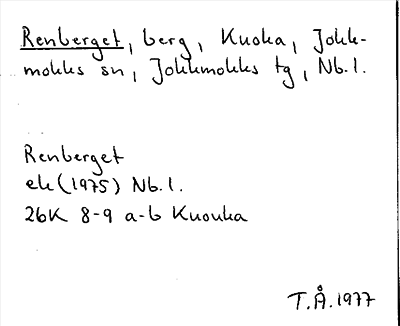 Renberget, berg, Kuoka, Jokk-
mokks sn, Jokkmokks tg, Nb.l.
Renberget
ek (1975) Nb.l.
26K 8-9 a-b Knouka
T.Å. 1977